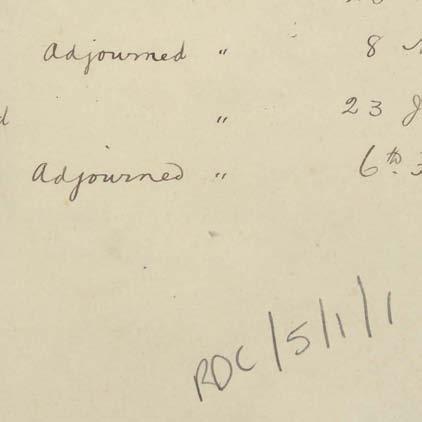 Adjourned " 8
" 23
Adjourned " 6th
RDC/5/1/1